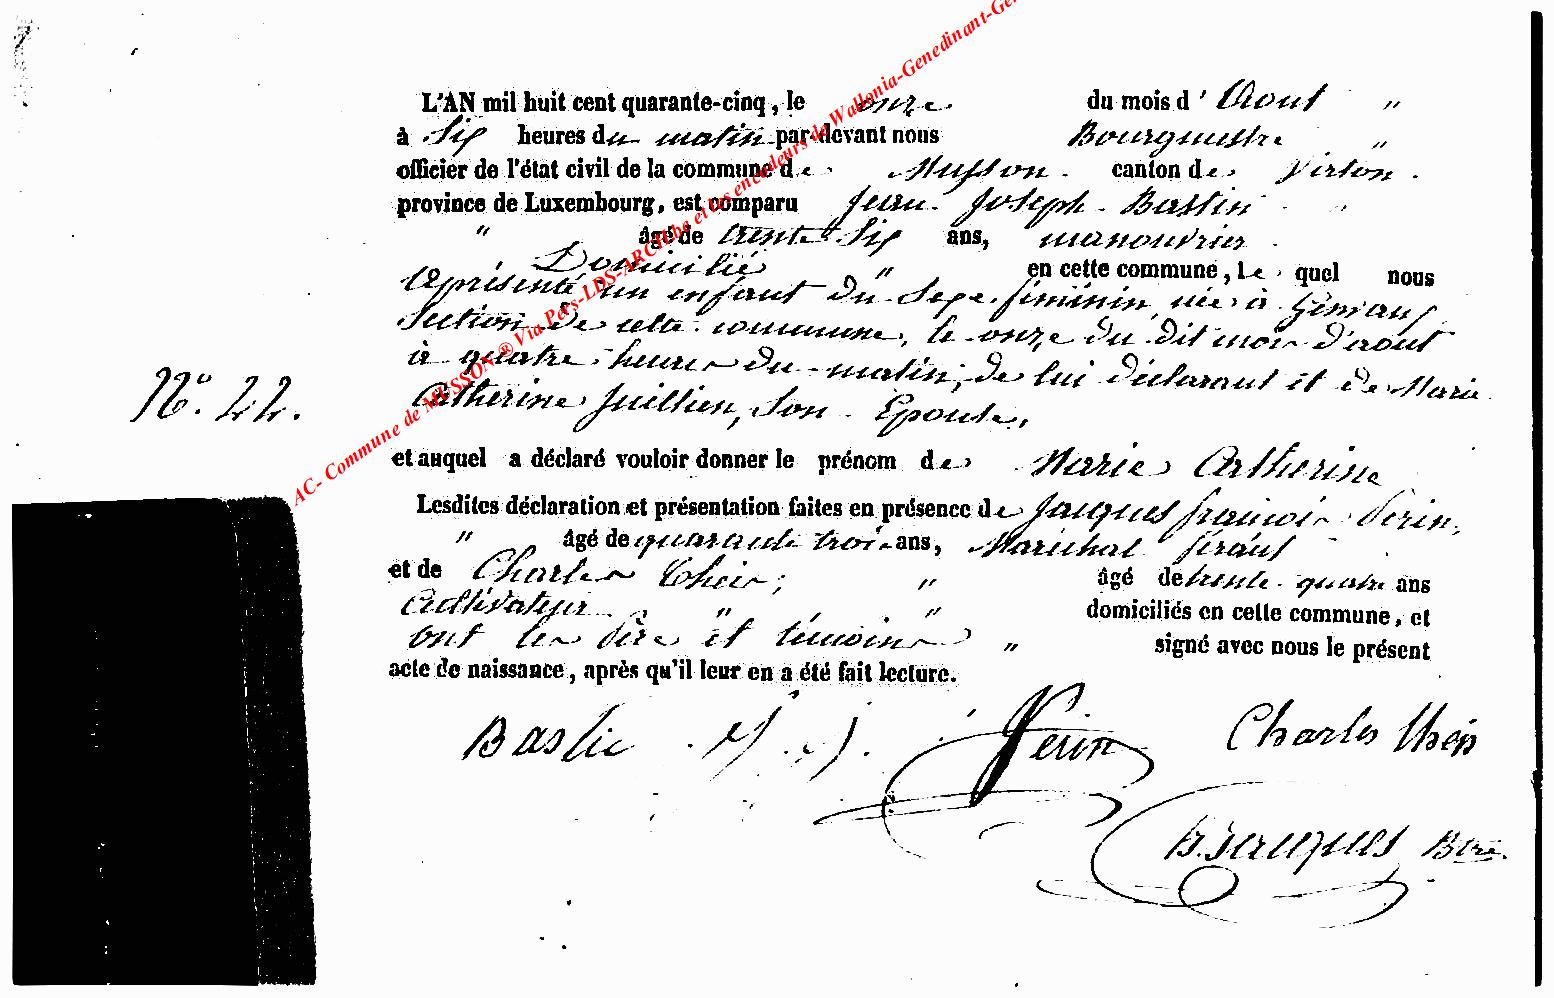 L'AN mil huit cent quarante-cinq, le onze du mois d'Aout "
à Six heures du matin par-devant nous Bourgmestre "
officier de l'état civil de la commune de Musson. canton de Virton.
province de Luxembourg, est comparu Jean Joseph Bastin "
" âgé de trente Six ans, manouvrier
Domicilié " en cette commune, le quel nous
a présenté un enfant du Sexe féminin, née à
Section de cette commune, le onze du dit mois d'aout
à quatre heures du matin, de lui déclarant et de Marie
Catherine Juillien, Son Epouse,
N° 22.
et auquel a déclaré vouloir donner le prénom de Marie Catherine
Lesdites déclaration et présentation faites en présence de Jacques françois Perin,
" âgé de quarante trois ans, Maréchal férant
et de Charles " âgé de trente quatre ans
Cultivateur " " domiciliés en cette commune, et
ont les Père et témoins " signé avec nous le présent
acte de naissance, après qu'il leur en a été fait lecture.
J. J. Perin Charles
Jacques
AC- Commune de MUSSON ® Via Pers-LDS-ARCH et les encodeurs de Wallonia-Genedinant-Ge